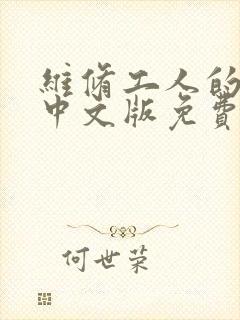 維脩工人的
中文版免費
何世荣